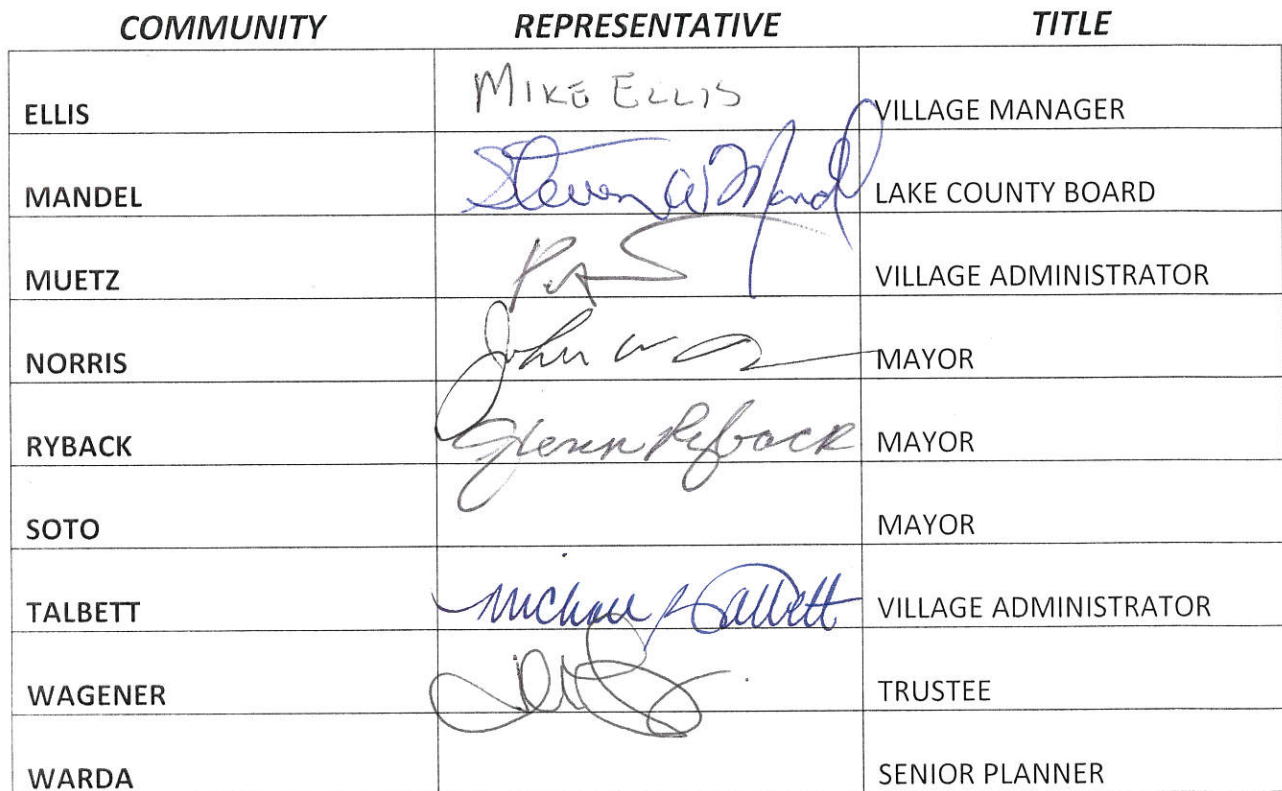 COMMUNITY REPRESENTATIVE TITLE
ELLIS MIKE ELLIS VILLAGE MANAGER
MANDEL Steven W Mandel LAKE COUNTY BOARD
MUETZ VILLAGE ADMINISTRATOR
NORRIS John W MAYOR
RYBACK Glenn Ryback MAYOR
SOTO MAYOR
TALBETT Michael J Talbett VILLAGE ADMINISTRATOR
WAGENER TRUSTEE
WARDA SENIOR PLANNER